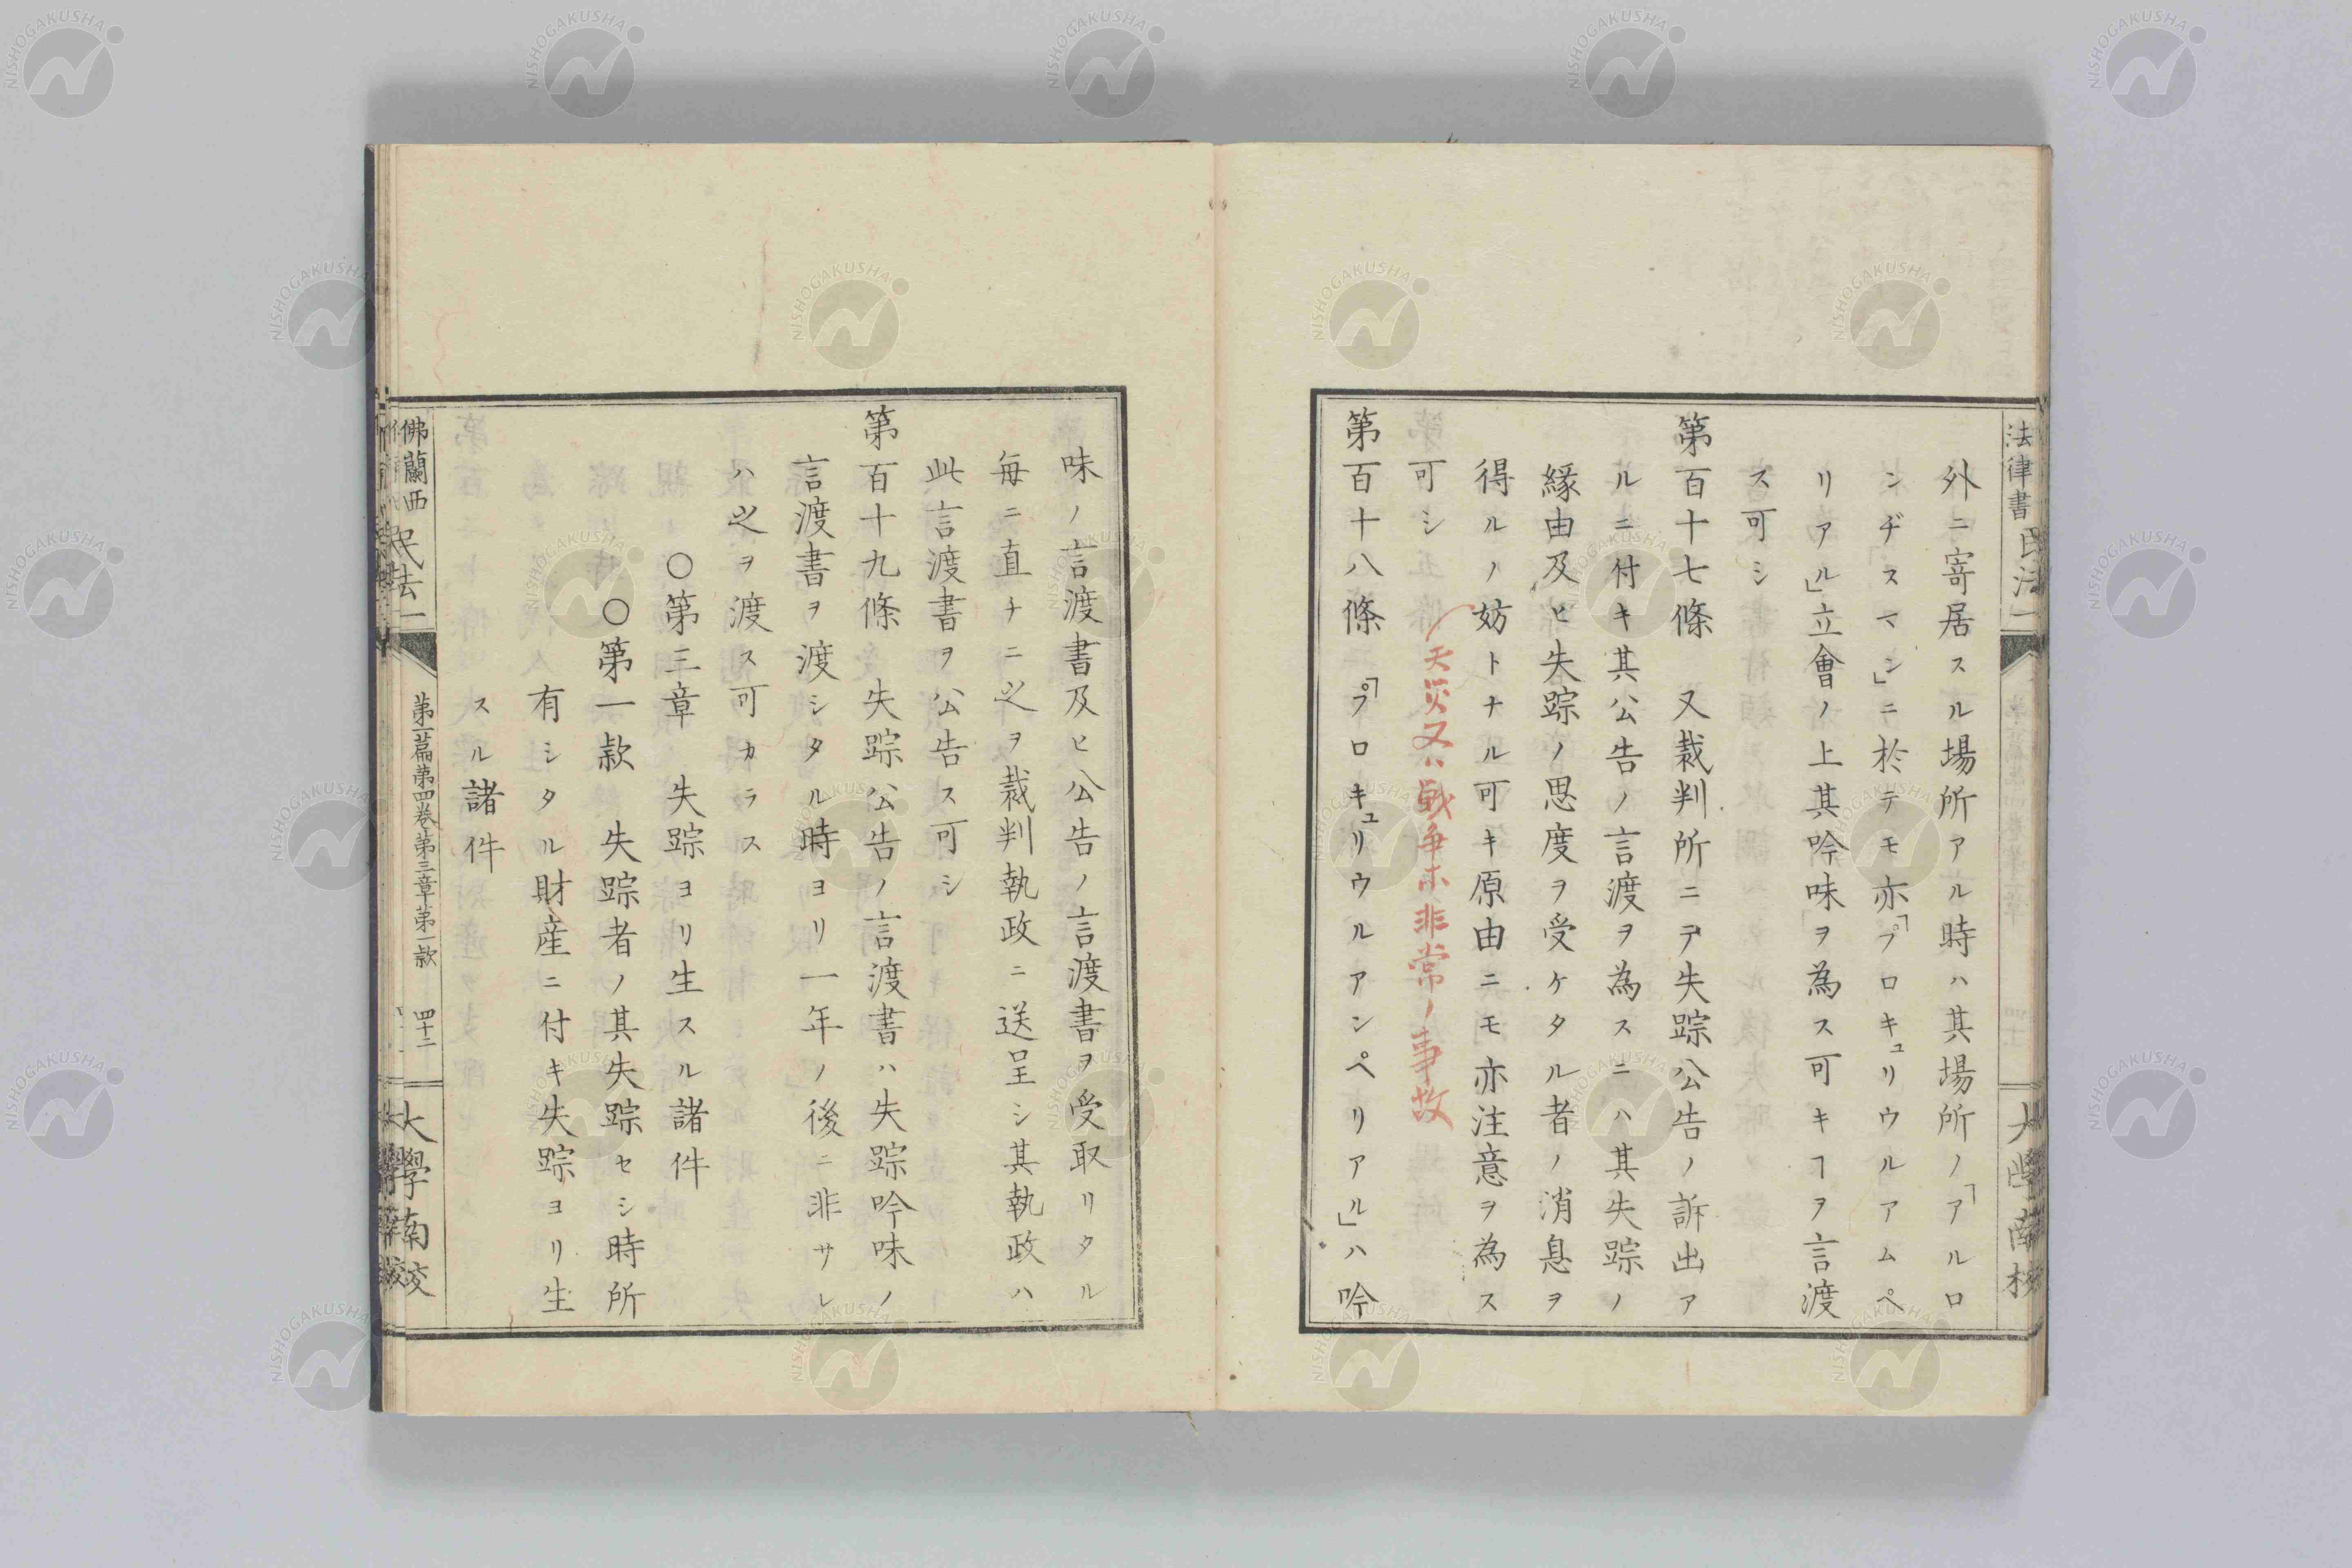 法律書 民法一
大學南校
外ニ寄居スル場所アル時ハ其場所ノ「アルロ
ンヂスマン」ニ於テモ亦「プロキュリウルアムペ
リアル」立會ノ上其吟味ヲ為ス可キヿヲ言渡
ス可シ
第百十七條 又裁判所ニテ失踪公告ノ訴出ア
ルニ付キ其公告ノ言渡ヲ為スニハ其失踪ノ
縁由及ヒ失踪ノ思度ヲ受ケタル者ノ消息ヲ
得ルノ妨トナル可キ原由ニモ亦注意ヲ為ス
可シ
天災又ハ戦争ホ非常ノ事故
第百十八條 「プロキュリウルアンペリアル」ハ吟
味ノ言渡書及ヒ公告ノ言渡書ヲ受取リタル
毎ニ直チニ之ヲ裁判執政ニ送呈シ其執政ハ
此言渡書ヲ公告ス可シ
第百十九條 失踪公告ノ言渡書ハ失踪吟味ノ
言渡書ヲ渡シタル時ヨリ一年ノ後ニ非サレ
ハ之ヲ渡ス可カラス
〇第三章 失踪ヨリ生スル諸件
〇第一款 失踪者ノ其失踪セシ時所
有シタル財産ニ付キ失踪ヨリ生
スル諸件
佛蘭西 民法一
第一篇第四巻第三章第一款 四十二
大學南校
NISHOGAKUSHA